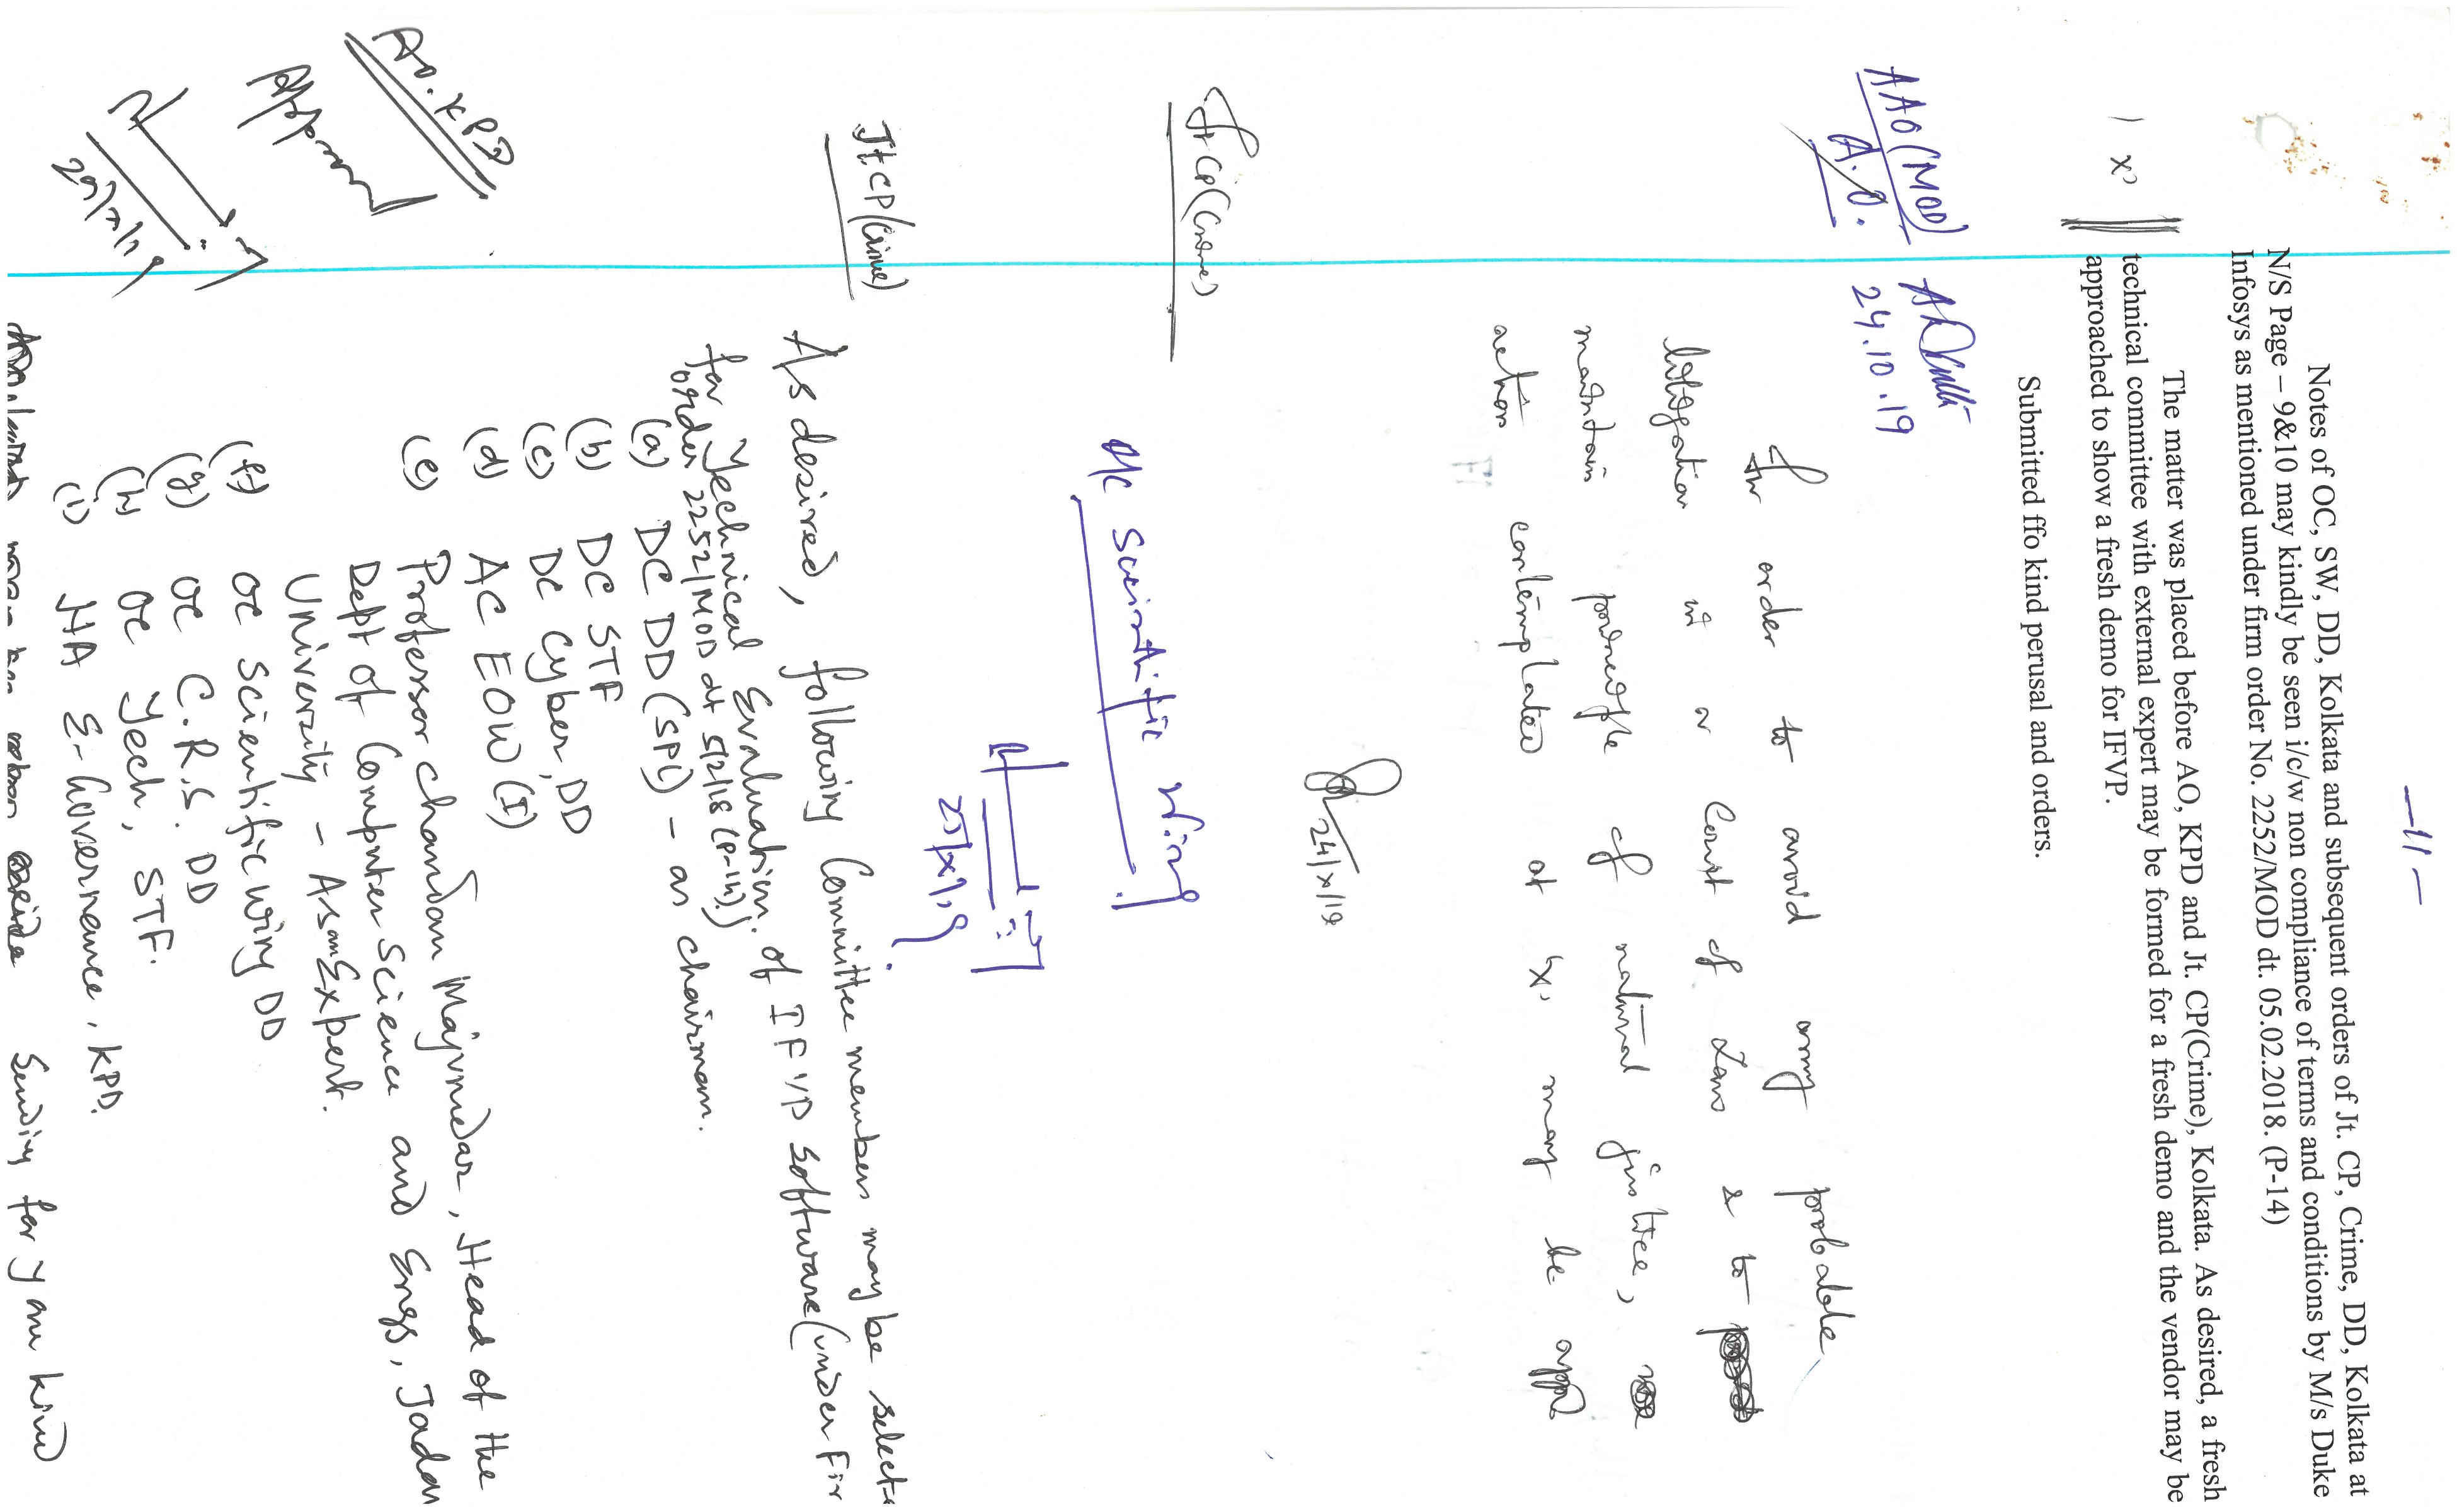 -11-
Notes of OC, SW, DD, Kolkata and subsequent orders of Jt. CP, Crime, DD, Kolkata at
N/S Page – 9&10 may kindly be seen i/c/w non compliance of terms and conditions by M/s Duke
Infosys as mentioned under firm order No. 2252/MOD dt. 05.02.2018. (P-14)
The matter was placed before AO, KPD and Jt. CP(Crime), Kolkata. As desired, a fresh
technical committee with external expert may be formed for a fresh demo and the vendor may be
approached to show a fresh demo for IFVP.
'x'
Submitted ffo kind perusal and orders.
AAO (MOD)
A.O.
24.10.19
In order to avoid any probable
litigation in a Court of Law & to
maintain principle of natural justice,
action contemplated at 'x' may be
24/x/19
Jt CP (Crime)
O/C Scientific Wing
25/x/19
Jt CP (Crime)
As desired, following Committee members may be selecte
for Technical Evaluation of IFVP Software (under Fir
order 2252/MOD dt 5/2/18 (P-14).)
(a) DC DD (SPL) - as chairman.
(b) DC STF
(c) DC Cyber, DD
(d) AC EOW (I)
(e) Professor Chandan Majumdar, Head of the
Dept of Computer Science and Engg, Jadav
University - As an Expert.
(f) OC Scientific Wing DD
(g) OC C.R.S. DD
(h) OC Tech, STF.
(i) HA E-Governance, KPD.
Sending for your kind
AO. KPD
Approved
29/x/19